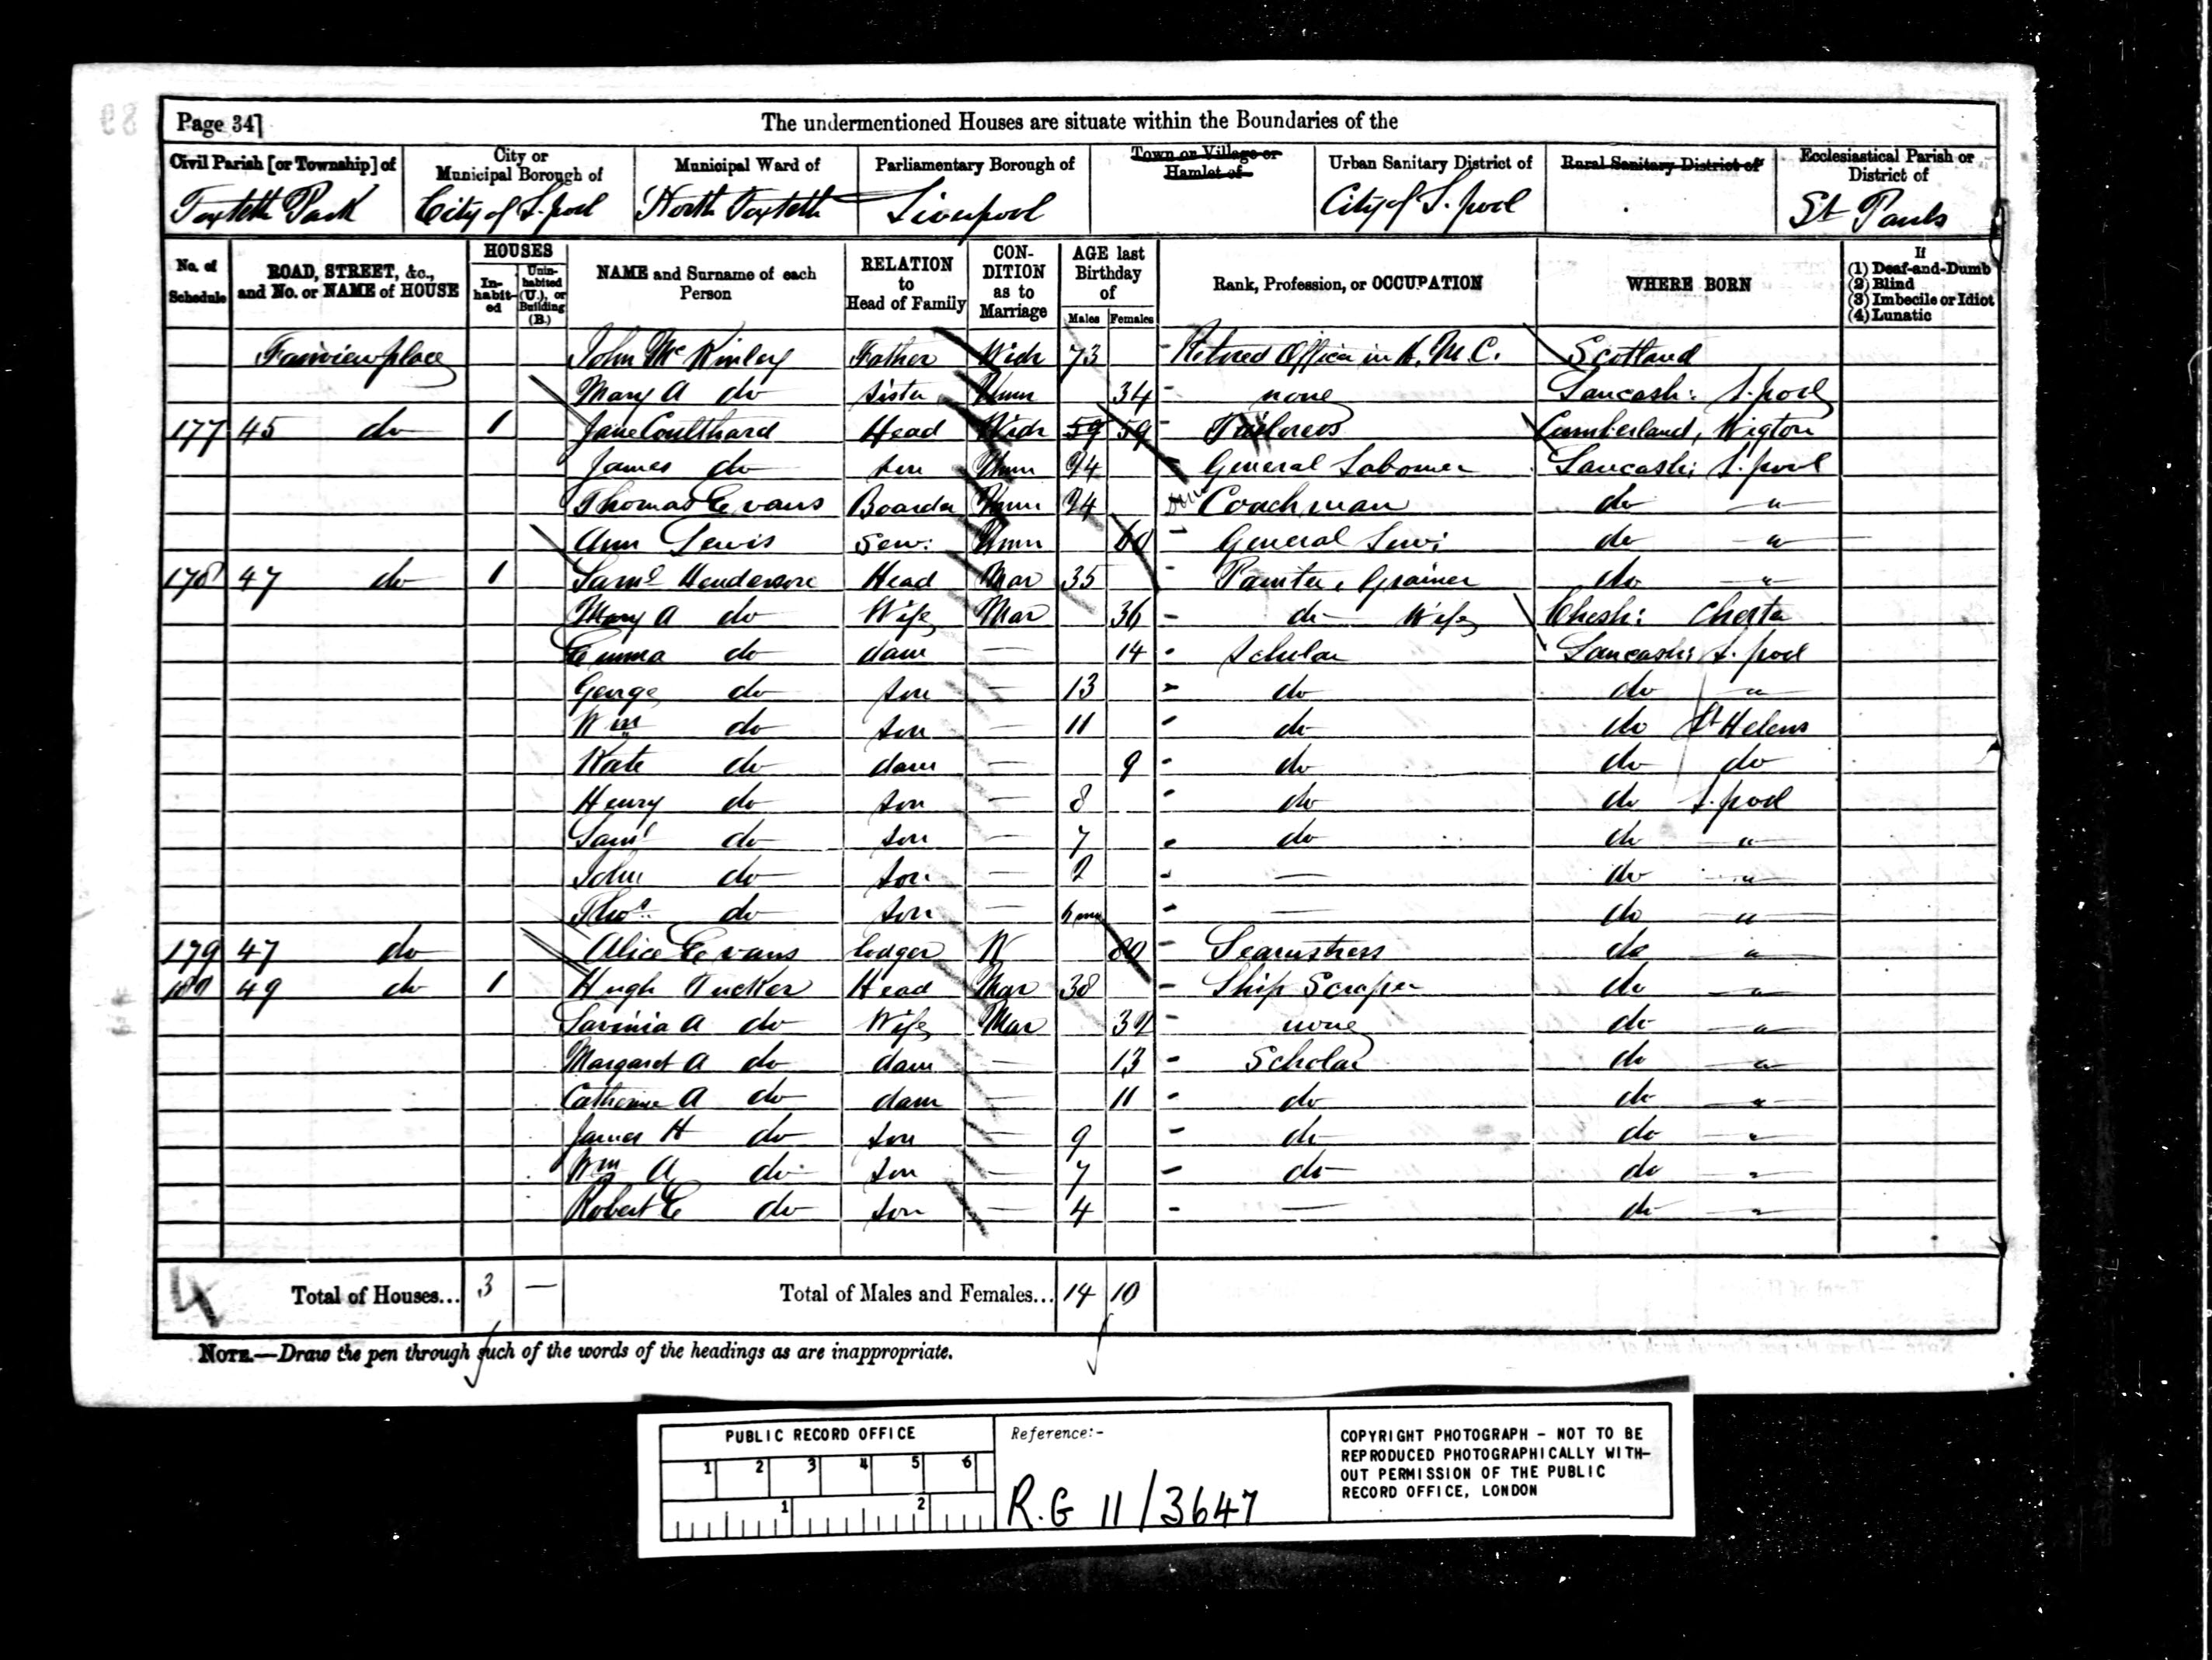 Page 34]
The undermentioned Houses are situate within the Boundaries of the
Civil Parish [or Township] of Toxteth Park
City or Municipal Borough of City of L.pool
Municipal Ward of North Toxteth
Parliamentary Borough of Liverpool
Town or Village or Hamlet of
Urban Sanitary District of City of L.pool
Rural Sanitary District of
Ecclesiastical Parish or District of St Pauls
No. of Schedule
ROAD, STREET, &c., and No. or NAME of HOUSE
HOUSES
Inhabited
Uninhabited (U.), or Building (B.)
NAME and Surname of each Person
RELATION to Head of Family
CONDITION as to Marriage
AGE last Birthday of
Males
Females
Rank, Profession, or OCCUPATION
WHERE BORN
If
(1) Deaf-and-Dumb
(2) Blind
(3) Imbecile or Idiot
(4) Lunatic
Fairview place John Mc Kinley Father Widr 73 Retired Officer in H.M.C. Scotland
Mary A do sister Unm 34 none Lancash: L.pool
177 45 do 1 Jane Coulthard Head Widr 59 59 Cumberland, Wigton
James do son Unm 24 General Labourer Lancash: L.pool
Thomas Evans Boarder Unm 24 Coachman do "
Ann Lewis Serv: Unm 60 General Serv: do "
178 47 do 1 Saml Henderson Head Mar 35 Painter, Grainer do "
Mary A do Wife Mar 36 do Wife Chesh: Chester
Emma do daur — 14 Scholar Lancash: L.pool
George do son — 13 do do "
Wm do son — 11 do do St Helens
Kate do daur — 9 do do do
Henry do son — 8 do do L.pool
Saml do son — 7 do do "
John do son — 2 — do "
Thos. do son — — do "
179 47 do Alice Evans lodger W 80 Seamstress do "
180 49 do 1 Hugh Tucker Head Mar 38 Ship Scraper do "
Lavinia A do Wife Mar 32 none do "
Margaret A do daur — 13 Scholar do "
Catherine A do daur — 11 do do "
James H do son — 9 do do "
Wm A do son — 7 do do "
Robert E do son — 4 — do "
4
Total of Houses... 3 —
Total of Males and Females... 14 10
NOTE.—Draw the pen through such of the words of the headings as are inappropriate.
PUBLIC RECORD OFFICE
1 2 3 4 5 6
1 2
Reference:-
R.G 11/3647
COPYRIGHT PHOTOGRAPH - NOT TO BE
REPRODUCED PHOTOGRAPHICALLY WITH-
OUT PERMISSION OF THE PUBLIC
RECORD OFFICE, LONDON